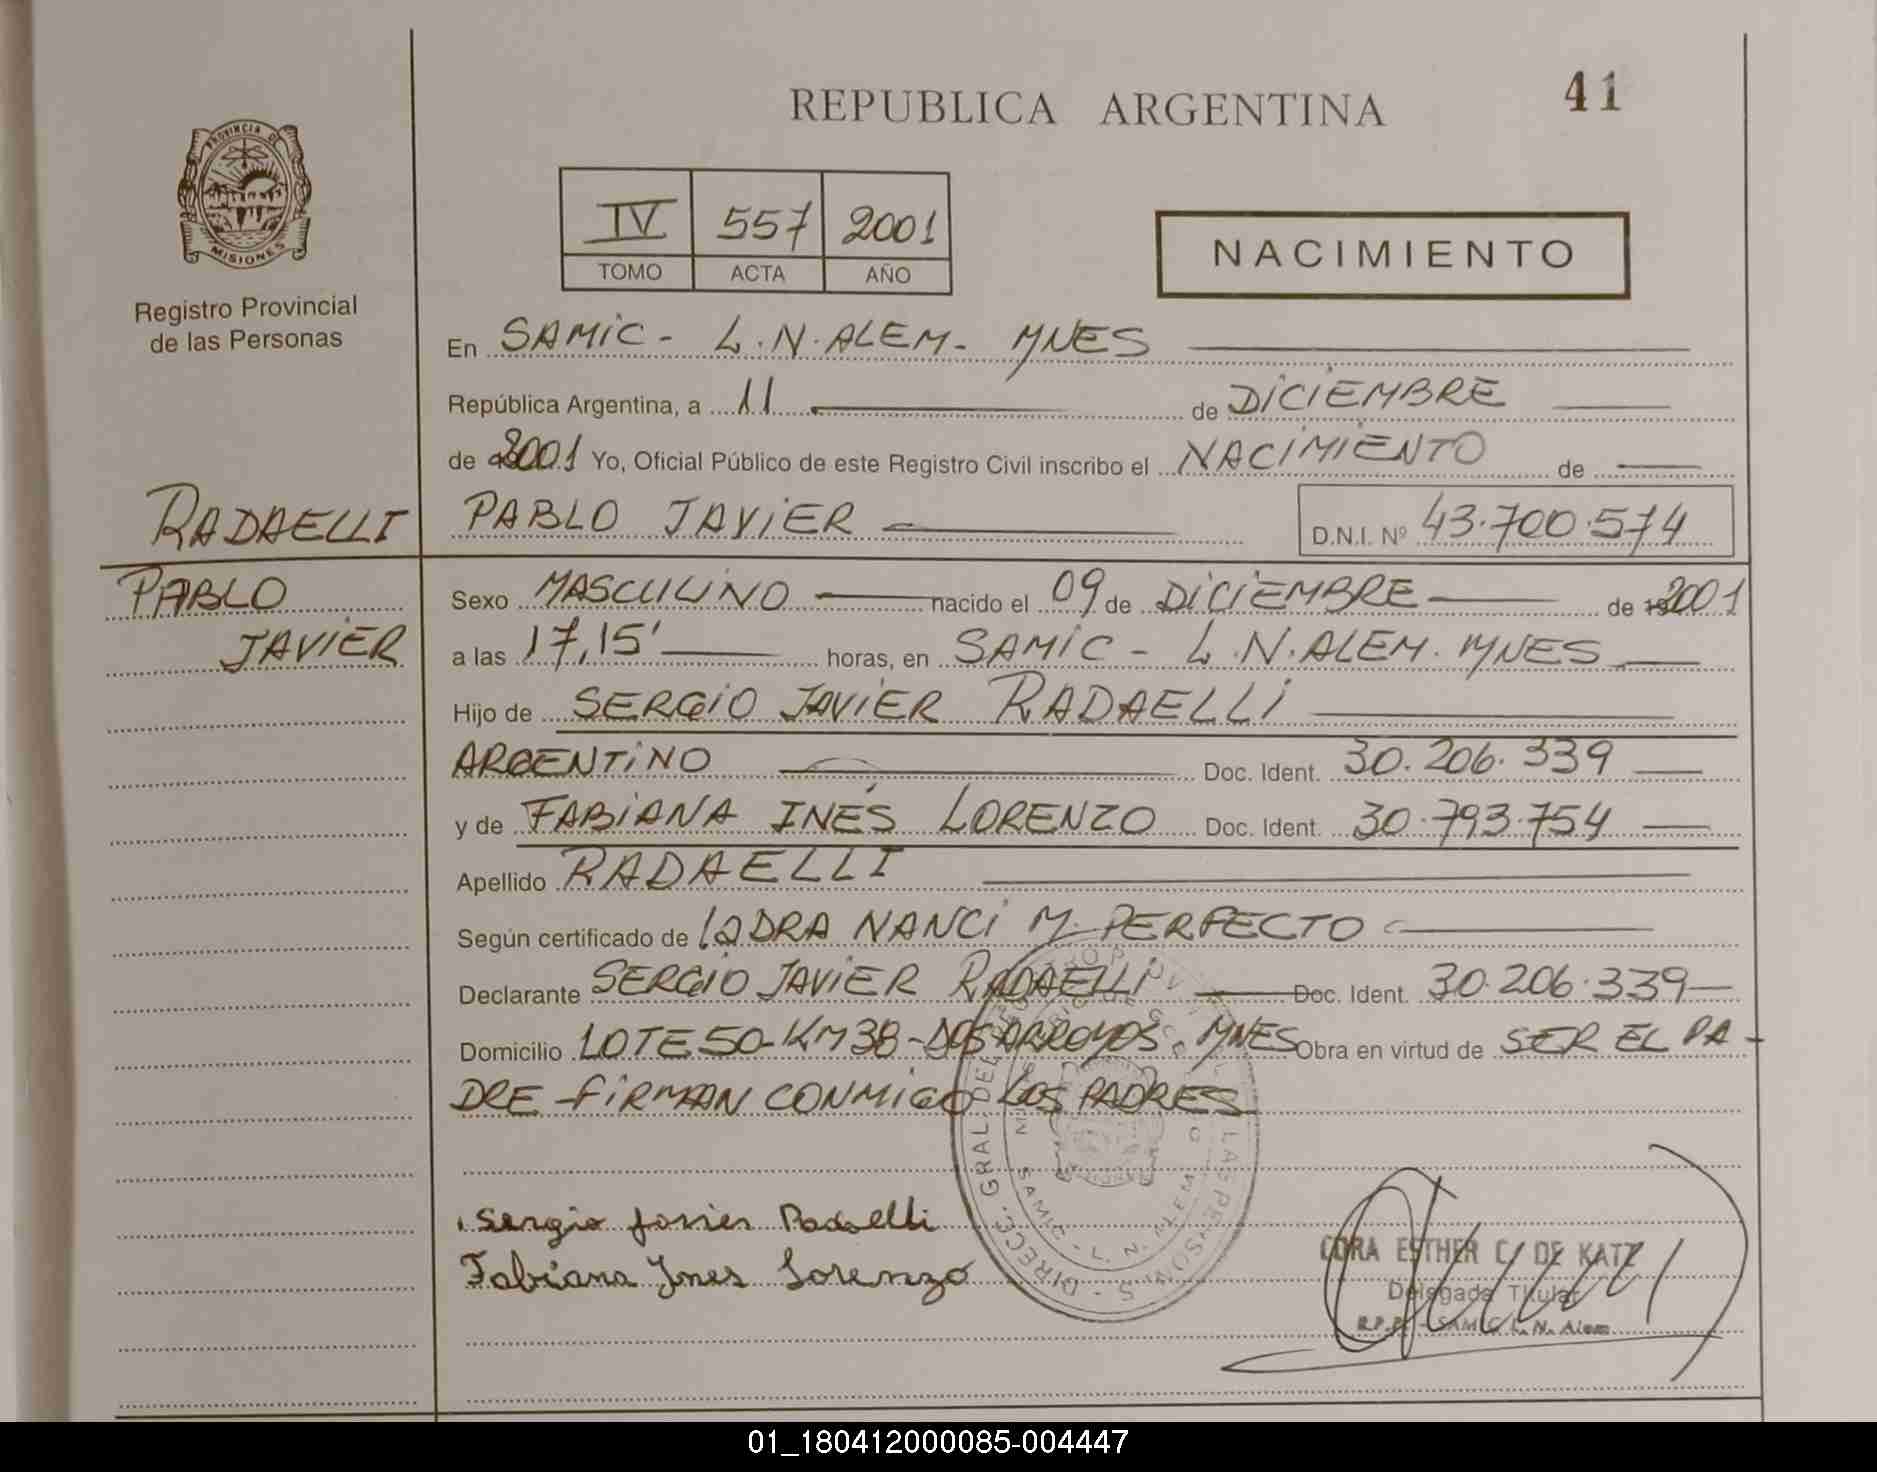 41
REPUBLICA ARGENTINA
PROVINCIA DE
MISIONES
Registro Provincial
de las Personas
IV 557 2001
TOMO ACTA AÑO
NACIMIENTO
En SAMIC - L.N.ALEM - MNES
República Argentina, a 11 de DICIEMBRE
de 2001 Yo, Oficial Público de este Registro Civil inscribo el NACIMIENTO de
RADAELLI PABLO JAVIER D.N.I. Nº 43.700.574
PABLO Sexo MASCULINO nacido el 09 de DICIEMBRE de 2001
JAVIER a las 17,15' horas, en SAMIC - L.N.ALEM. MNES
Hijo de SERGIO JAVIER RADAELLI
ARGENTINO Doc. Ident. 30.206.339
y de FABIANA INÉS LORENZO Doc. Ident. 30.793.754
Apellido RADAELLI
Según certificado de DRA NANCI M. PERFECTO
Declarante SERGIO JAVIER RADAELLI Doc. Ident. 30.206.339
Domicilio LOTE 50-KM 38-DOS ARROYOS. MNES Obra en virtud de SER EL PA-
DRE FIRMAN CONMIGO LOS PADRES
Sergio Javier Radaelli
Fabiana Ines Lorenzo
CORA ESTHER C. DE KATZ
Delegada Titular
R.P.P. - SAMIC L.N. Alem
01_180412000085-004447